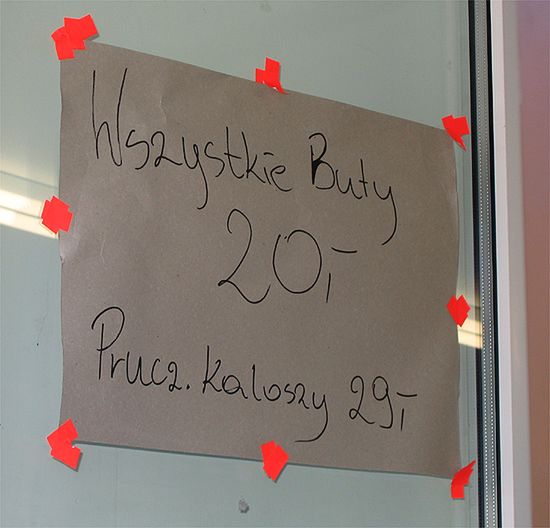 Wszystkie Buty
20,-
Prucz. Kaloszy 29,-